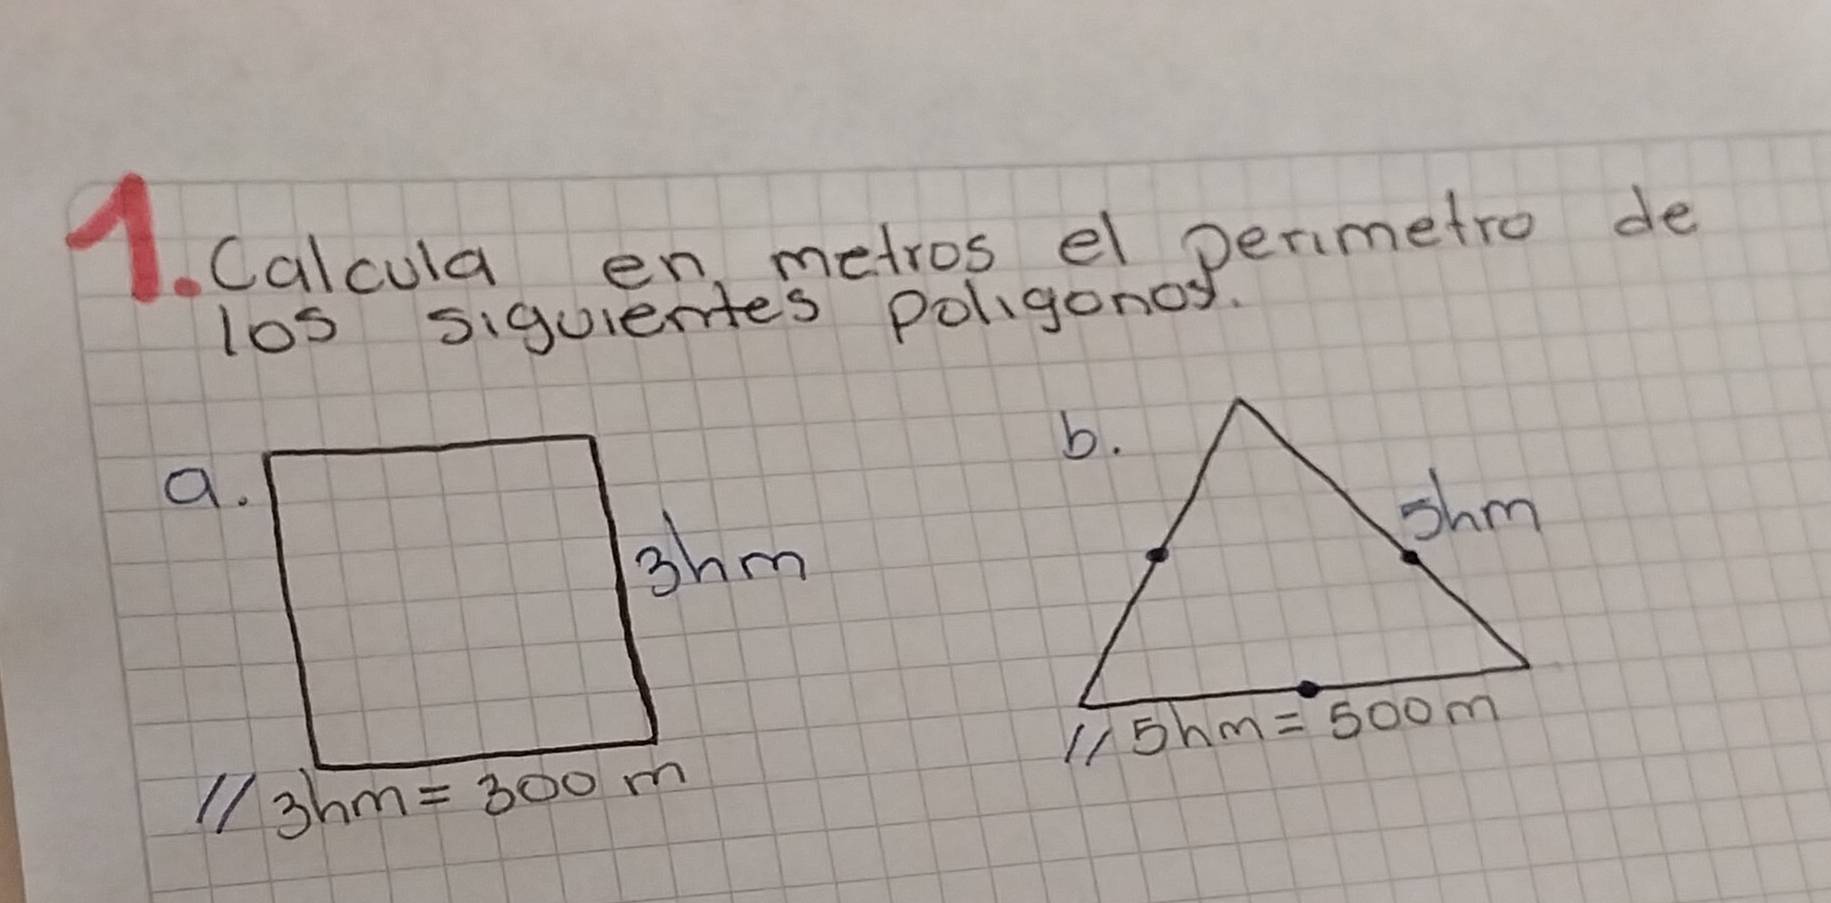 1. Calcula en metros el perimetro de
los siguientes poligonos.
a.
3hm
// 3hm = 300 m
b.
5hm
// 5hm = 500m